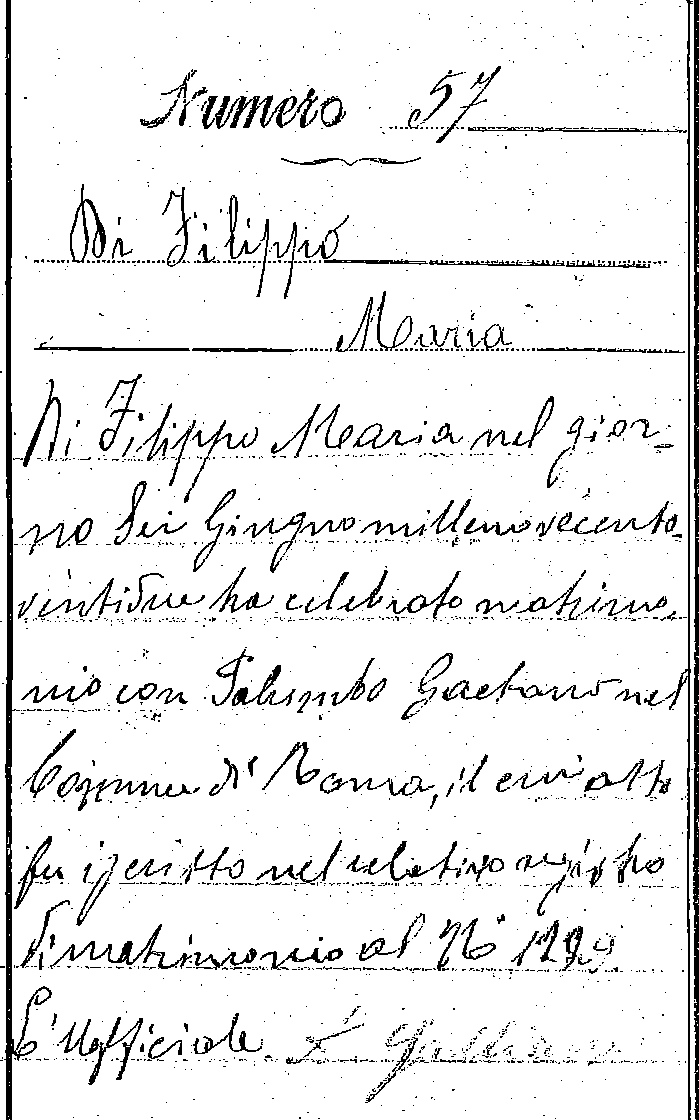 Numero 57
Di Filippo
Maria
Di Filippo Maria nel gior-
no Sei Giugno millenovecento-
ventidue ha celebrato matrimo-
nio con Palumbo Gaetano nel
Comune di Roma, il cui atto
fu iscritto nel relativo registro
di matrimonio al N°
L'Ufficiale